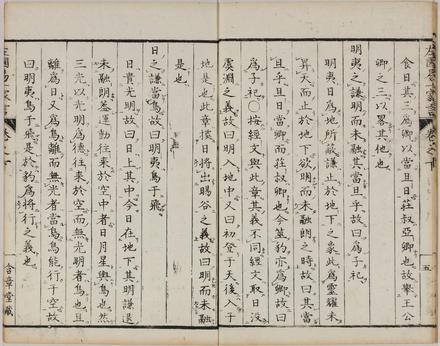 食日其三爲卿以當且日莊叔亞卿也故擧王公
卿之三以畧其他也
明夷之謙明而未融其當旦乎故曰爲子祀
明夷日爲地所蔽謙止於地下之象此爲靈耀未
昇天而止於地下欲明而未融朗之時故曰其當
旦乎且日當卿而莊叔卿也今筮豹亦爲卿故曰
爲子祀○按經文與此章其義不同經文取日沒
虞淵之義故曰明入地中又曰初登于天後入于
地是也此章據日將出暘谷之義故曰明而未融
是也
日之謙當鳥故曰明夷鳥于飛
日貴光明故曰日上其中今日在地下其明謙退
未融朗葢運動往來於空中者日月星與鳥也然
三光以光明爲德往來於空而無光明者鳥也且
離爲日又爲鳥離而無光者當鳥鳥能行于空故
曰明夷鳥于飛是於豹爲將行之義也
五
含章堂藏